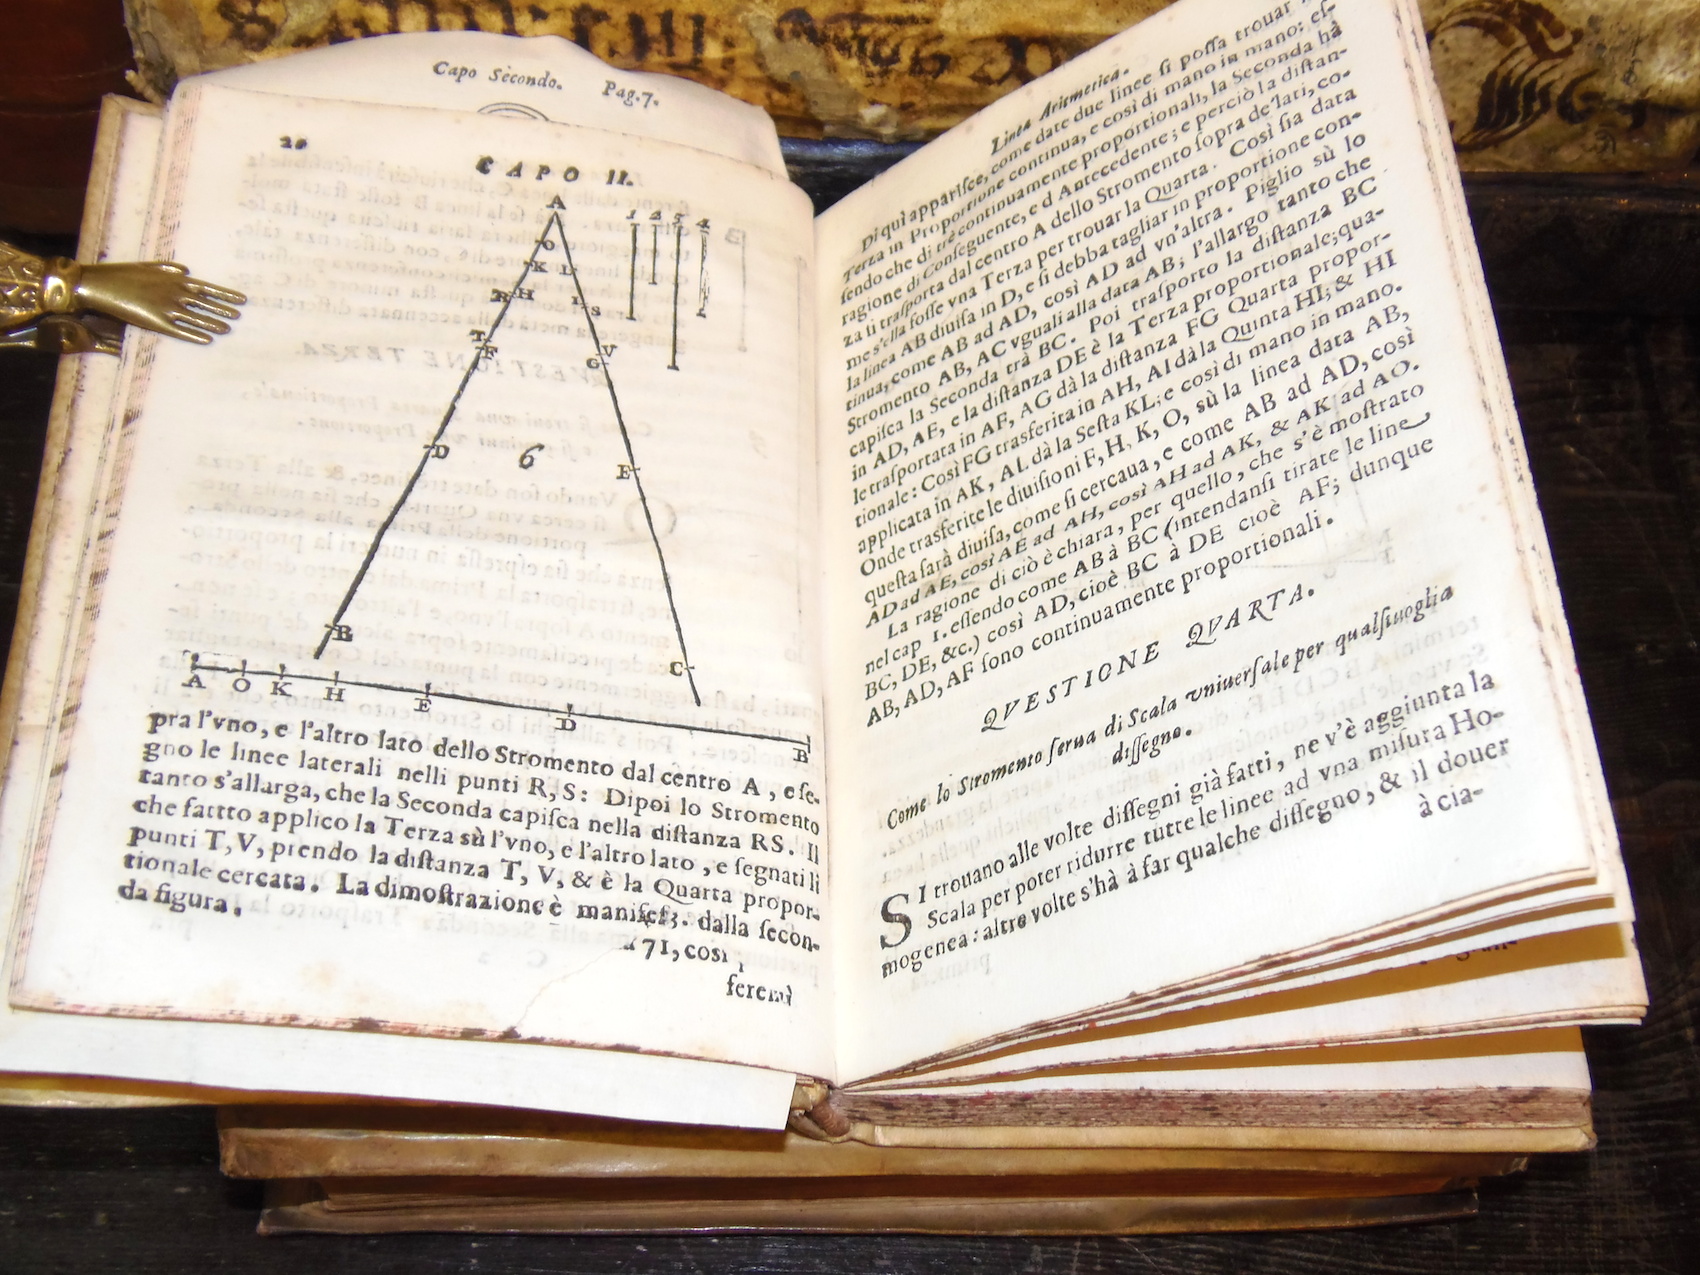 Capo Secondo. Pag.7.
20
CAPO II.
A
1 2 3 4
O
K L
R H I S
T V
F G
D 6 E
B
C
A O K H E D B
pra l'vno, e l'altro lato dello Stromento dal centro A, e se-
gno le linee laterali nelli punti R, S: Dipoi lo Stromento
tanto s'allarga, che la Seconda capisca nella distanza RS. Il
che fattto applico la Terza sù l'vno, e l'altro lato, e segnati li
punti T, V, prendo la distanza T, V, & è la Quarta propor-
tionale cercata. La dimostrazione è manifest. dalla secon-
da figura.
71, così
feremì
Linea Aritmetica.
Di quì apparisce, come date due linee si possa trouar
Terza in Proportione continua, e così di mano in mano: es-
sendo che di trè continuamente proportionali, la Seconda hà
ragione di Conseguente, e d'Antecedente; e perciò la distan-
za si trasporta dal centro A dello Stromento sopra de' lati, co-
me s'ella fosse vna Terza per trouar la Quarta. Così sia data
la linea AB diuisa in D, e si debba tagliar in proportione con-
tinua, come AB ad AD, così AD ad vn'altra. Piglio sù lo
Stromento AB, AC vguali alla data AB; l'allargo tanto che
capisca la Seconda trà BC. Poi trasporto la distanza BC
in AD, AE, e la distanza DE è la Terza proportionale; qua-
le trasportata in AF, AG dà la distanza FG Quarta propor-
tionale: Così FG trasferita in AH, AI dà la Quinta HI; & HI
applicata in AK, AL dà la Sesta KL; e così di mano in mano.
Onde trasferite le diuisioni F, H, K, O, sù la linea data AB,
questa sarà diuisa, come si cercaua, e come AB ad AD, così
AD ad AE, così AE ad AH, così AH ad AK, & AK ad AO.
La ragione di ciò è chiara, per quello, che s'è mostrato
nel cap 1. essendo come AB à BC (intendansi tirate le linee
BC, DE, &c.) così AD, cioè BC à DE cioè AF; dunque
AB, AD, AF sono continuamente proportionali.
QVESTIONE QVARTA.
Come lo Stromento serua di Scala vniuersale per qualsiuoglia
dissegno.
SI trouano alle volte dissegni già fatti, ne v'è aggiunta la
Scala per poter ridurre tutte le linee ad vna misura Ho-
mogenea: altre volte s'hà à far qualche dissegno, & il douer
à cia-